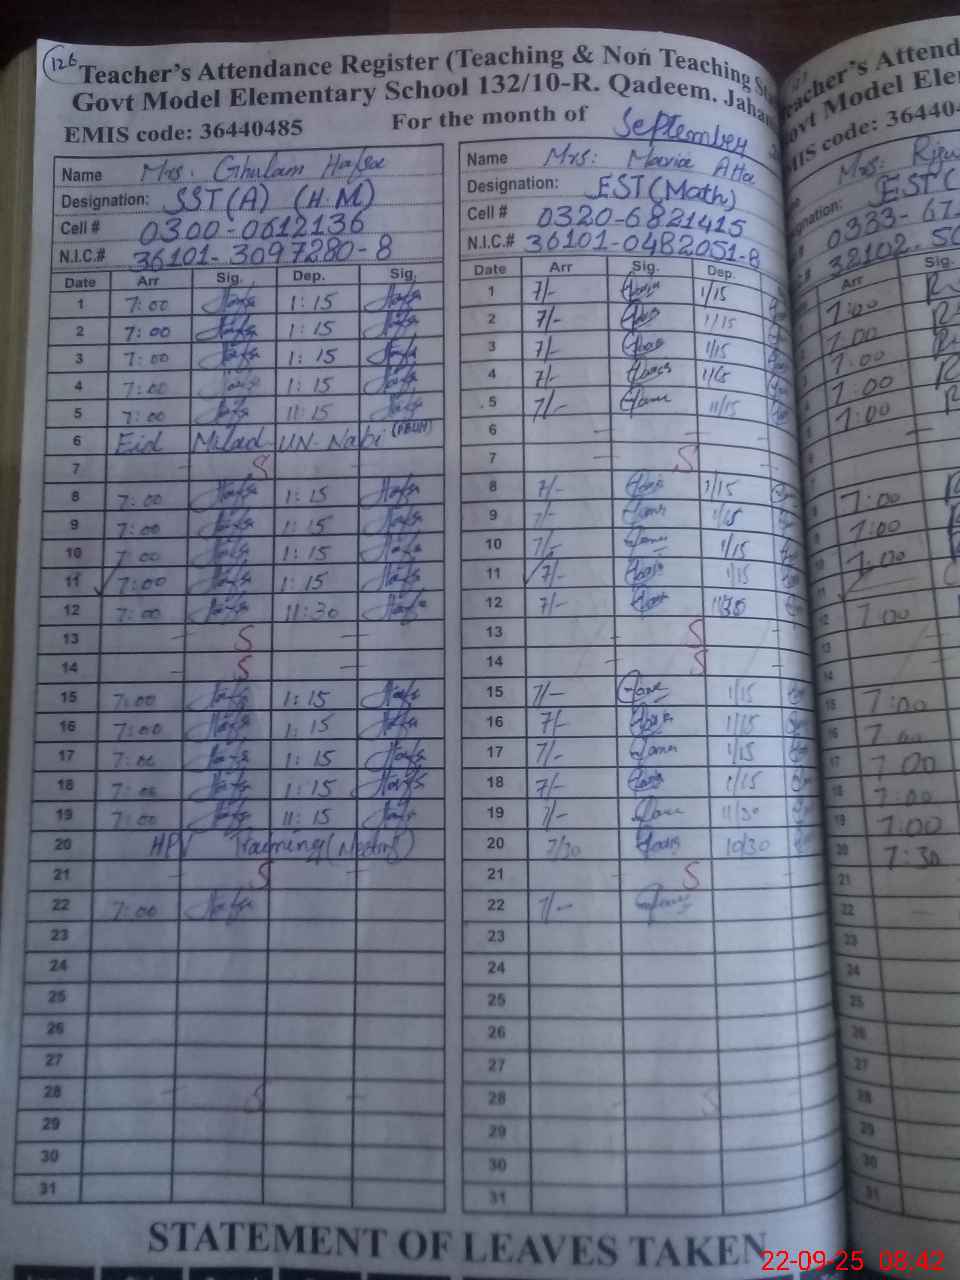 126
Teacher's Attendance Register (Teaching & Non Teaching
Govt Model Elementary School 132/10-R. Qadeem. Jahan
EMIS code: 36440485 For the month of September
Name Mrs. Ghulam Hafsa
Designation: SST(A) (H.M)
Cell # 0300-0612136
N.I.C.# 36101-3097280-8
Date Arr Sig. Dep. Sig.
1 7:00 Hafsa 1:15 Hafsa
2 7:00 Hafsa 1:15 Hafsa
3 7:00 Hafsa 1:15 Hafsa
4 7:00 Hafsa 1:15 Hafsa
5 7:00 Hafsa 11:15 Hafsa
6 Eid Milad UN-Nabi (PBUH)
7 - S -
8 7:00 Hafsa 1:15 Hafsa
9 7:00 Hafsa 1:15 Hafsa
10 7:00 Hafsa 1:15 Hafsa
11 7:00 Hafsa 1:15 Hafsa
12 7:00 Hafsa 11:30 Hafsa
13 - S -
14 - S -
15 7:00 Hafsa 1:15 Hafsa
16 7:00 Hafsa 1:15 Hafsa
17 7:00 Hafsa 1:15 Hafsa
18 7:00 Hafsa 1:15 Hafsa
19 7:00 Hafsa 11:15 Hafsa
20 HPV Training
21 - S -
22 7:00 Hafsa
23
24
25
26
27
28 - S -
29
30
31
Name Mrs: Atta
Designation: EST(Math)
Cell # 0320-6821415
N.I.C.# 36101-0482051-8
Date Arr Sig. Dep.
1 7/- 1/15
2 7/- 1/15
3 7/- 1/15
4 7/- 1/15
5 7/- 11/15
6 - -
7 - S -
8 7/- 1/15
9 7/- 1/15
10 7/- 1/15
11 7/- 1/15
12 7/- 11/30
13 - S -
14 - S -
15 7/- 1/15
16 7/- 1/15
17 7/- 1/15
18 7/- 1/15
19 7/- 11/30
20 7/30 10/30
21 - S -
22 7/-
23
24
25
26
27
28 - S -
29
30
31
acher's Attend
ovt Model Ele
IS code: 36440
Mrs:
EST(
0333-67
32102-50
Arr Sig.
7:00
7:00
7:00
7:00
7:00
7:00
7:00
7:00
12 7:00
13
14
15 7:00
16
17 7:00
18 7:00
19 7:00
20 7:30
21
22 -
23
24
25
26
27
28
29
30
31
STATEMENT OF LEAVES TAKEN
22-09-25 08:42